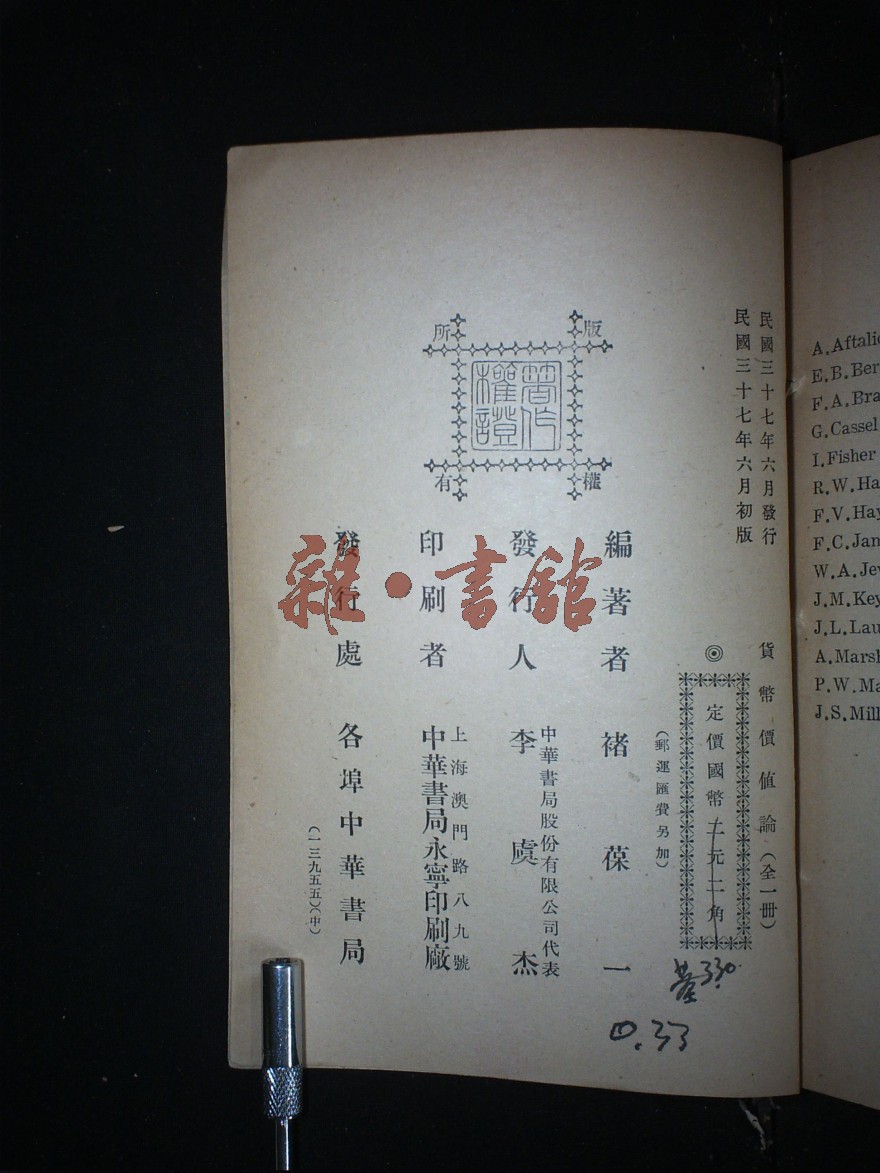 民國三十七年六月發行
民國三十七年六月初版
貨幣價值論（全一冊）
◎
定價國幣二元二角
（郵運匯費另加）
編著者 褚葆一
發行人 中華書局股份有限公司代表
李虞杰
印刷者 上海澳門路八九號
中華書局永寧印刷廠
發行處 各埠中華書局
（一三九五五）（中）
版權所有
著作權證
雜·書館
330
0.33
A. Aftalio
E. B. Ber
F. A. Bra
G. Cassel
I. Fisher
R. W. Ha
F. V. Hay
F. C. Jan
W. A. Jev
J. M. Key
J. L. Lau
A. Marsh
P. W. Ma
J. S. Mill